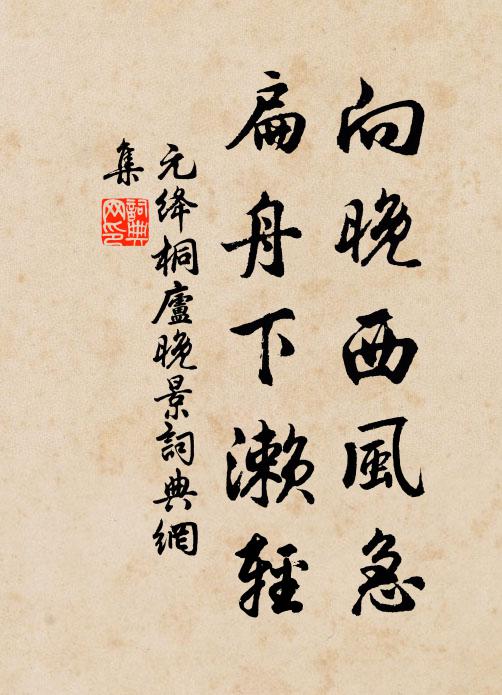 向晚西風急
扁舟下瀨輕
元絳桐廬晚景詞典網
集
詞典
网印